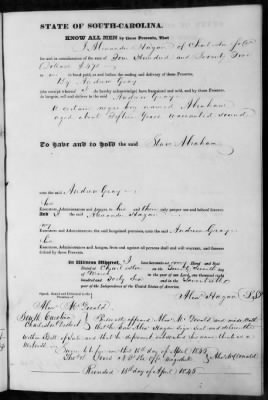 STATE OF SOUTH-CAROLINA.
KNOW ALL MEN by these Presents, That
I Alexander Hagan of Charleston
for and in consideration of the sum of Four Hundred and Seventy Five
Dollars $475
to me in hand paid, at and before the sealing and delivery of these Presents,
By Andrew Gray
(the receipt whereof I do hereby acknowledge) have bargained and sold, and by these Presents,
do bargain, sell and deliver to the said Andrew Gray
A certain negro boy named Abraham
aged about Fifteen Years warranted sound
To have and to hold the said Slave Abraham
unto the said Andrew Gray
his
Executors, Administrators and Assigns, to his and their only proper use and behoof forever.
And I the said Alexander Hagan my
Executors and Administrators, the said bargained premises, unto the said Andrew Gray
his
Executors, Administrators and Assigns, from and against all persons shall and will warrant, and forever
defend by these Presents.
In Witness Whereof, I have hereunto set my Hand and Seal
Dated at Charleston on the
in the year of our Lord, one thousand eight
hundred and forty and in the
year of the Independence of the United States of America.
Signed, Sealed and Delivered in the Presence of
Alex Hagan
Alex McDonald
South Carolina
Charleston District
Personally appeared Alex McDonald and made Oath
that he saw Alex Hagan sign Seal and deliver the
within Bill of Sale and that he
Witness
Sworn before me this 15th day of April 1845
Alex McDonald
Recorded 15th April 1845